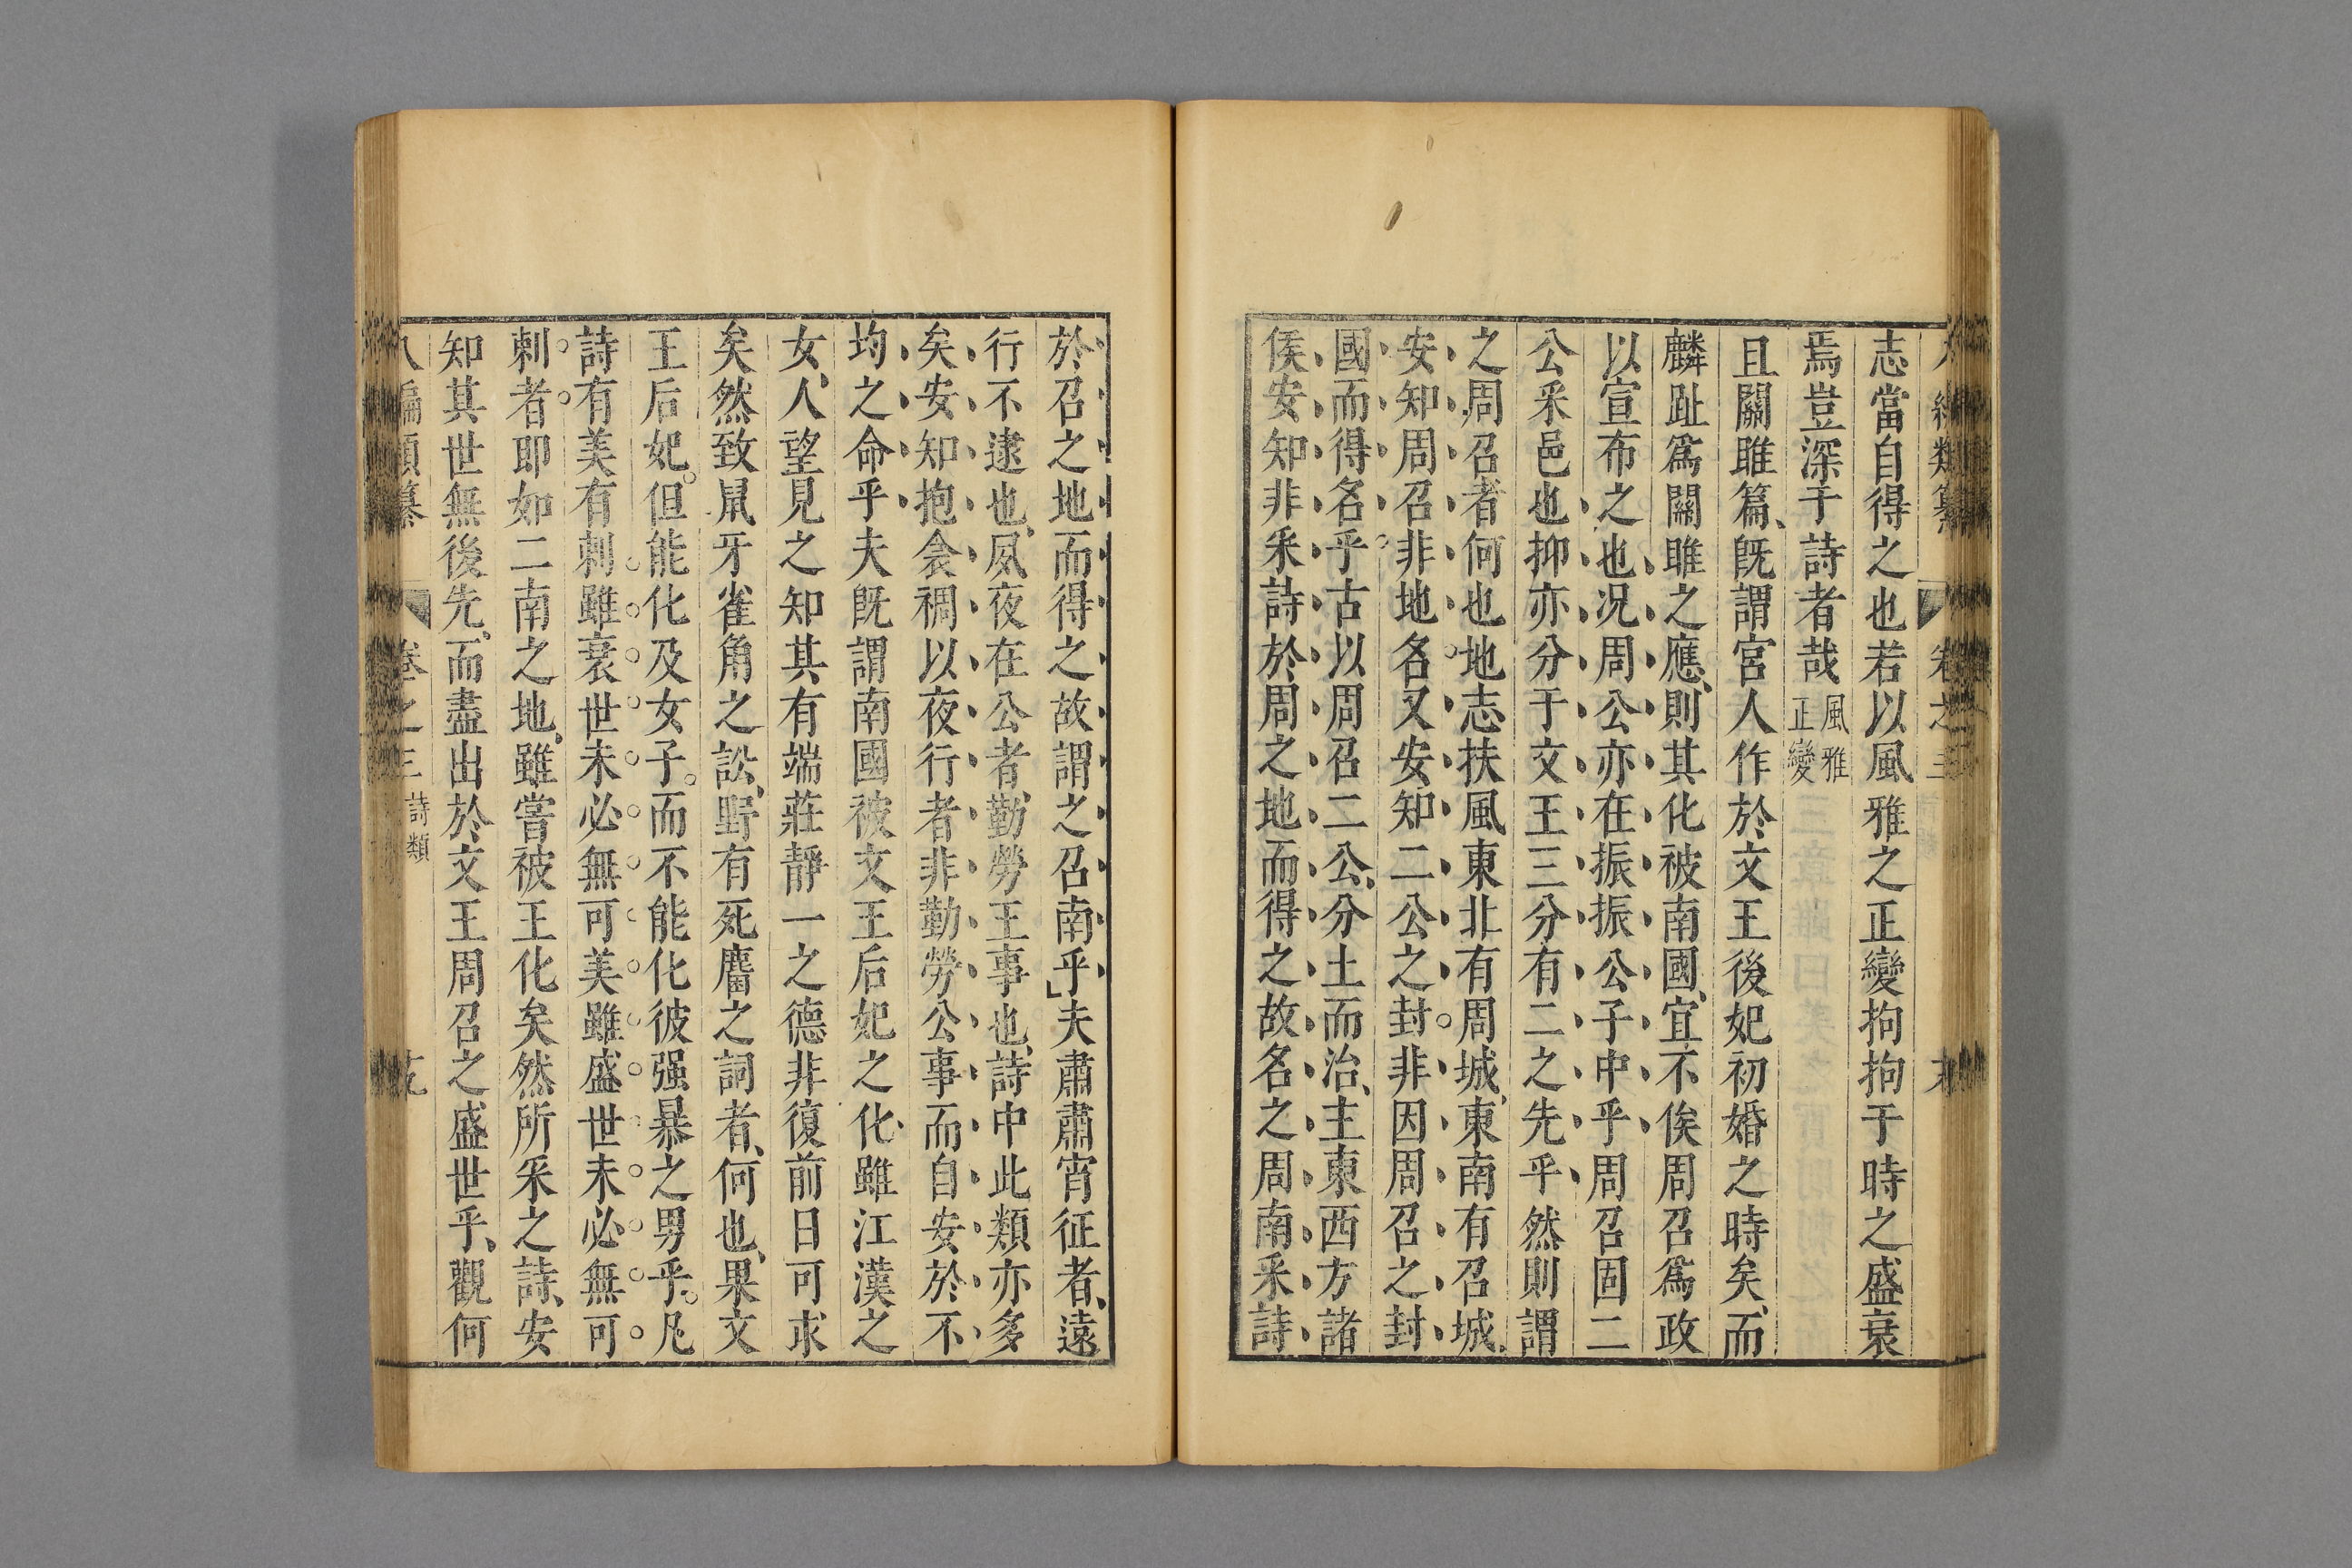 編類纂 卷之三
志當自得之也若以風雅之正變拘拘于時之盛衰
焉豈深于詩者哉風雅正變
且關雎篇既謂宮人作於文王後妃初婚之時矣而
麟趾爲關雎之應則其化被南國宜不俟周召爲政
以宣布之也况周公亦在振振公子中乎周召固二
公采邑也抑亦分于文王三分有二之先乎然則謂
之周召者何也地志扶風東北有周城東南有召城
安知周召非地名又安知二公之封非因周召之封
國而得名乎古以周召二公分土而治主東西方諸
侯安知非采詩於周之地而得之故名之周南采詩
於召之地而得之故謂之召南乎夫肅肅宵征者遠
行不逮也夙夜在公者勤勞王事也詩中此類亦多
矣安知抱衾裯以夜行者非勤勞公事而自安於不
均之命乎夫既謂南國被文王后妃之化雖江漢之
女人望見之知其有端莊靜一之德非復前日可求
矣然致鼠牙雀角之訟野有死麕之詞者何也果文
王后妃但能化及女子而不能化彼强暴之男乎凡
詩有美有刺雖衰世未必無可美雖盛世未必無可
刺者即如二南之地雖嘗被王化矣然所采之詩安
知其世無後先而盡出於文王周召之盛世乎觀何
八編類纂 卷之三 詩類